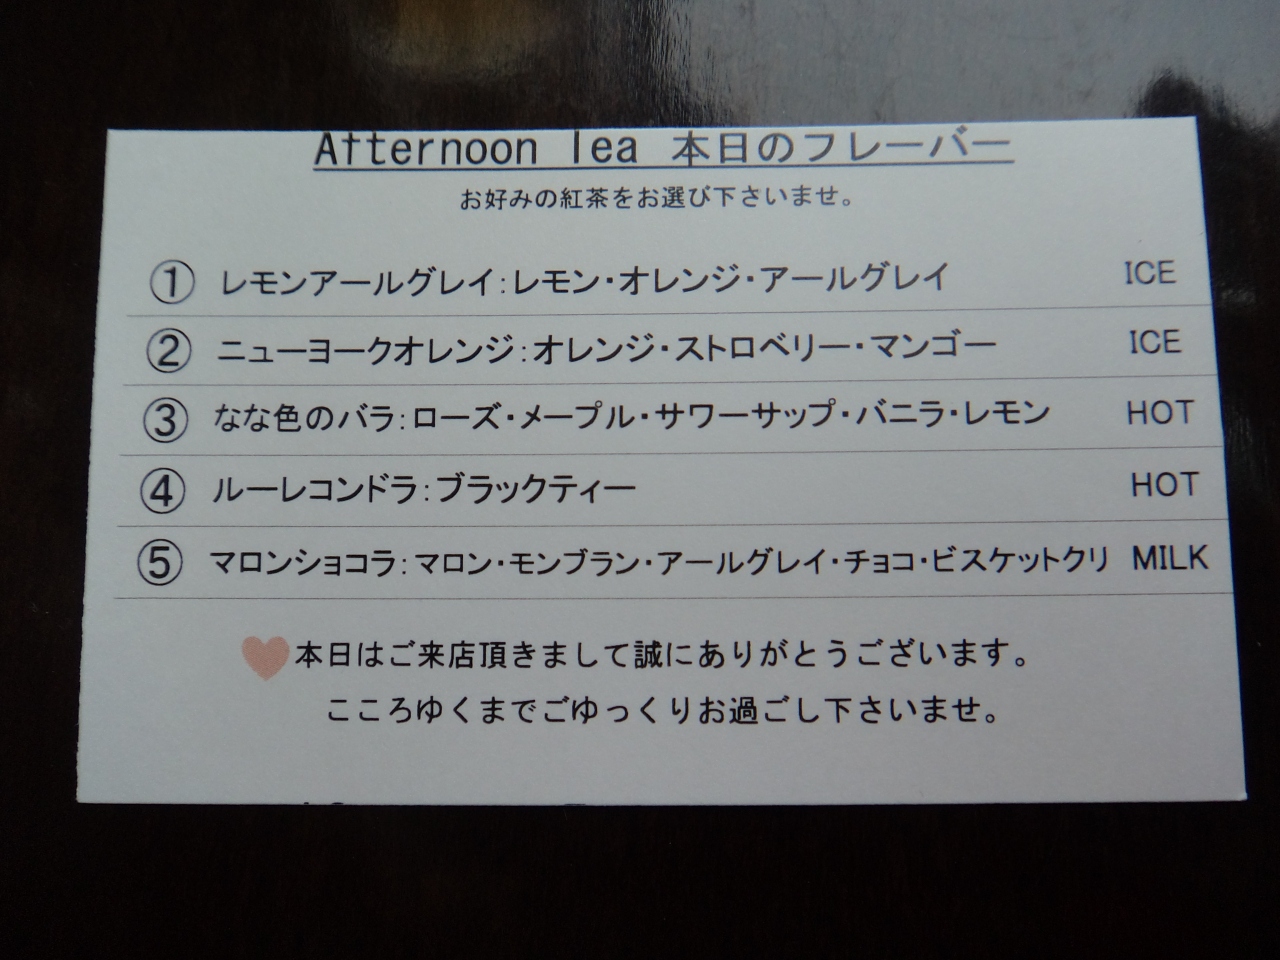 Afternoon Tea 本日のフレーバー
お好みの紅茶をお選び下さいませ。
① レモンアールグレイ：レモン・オレンジ・アールグレイ ICE
② ニューヨークオレンジ：オレンジ・ストロベリー・マンゴー ICE
③ なな色のバラ：ローズ・メープル・サワーサップ・バニラ・レモン HOT
④ ルーレコンドラ：ブラックティー HOT
⑤ マロンショコラ：マロン・モンブラン・アールグレイ・チョコ・ビスケットクリ MILK
本日はご来店頂きまして誠にありがとうございます。
こころゆくまでごゆっくりお過ごし下さいませ。